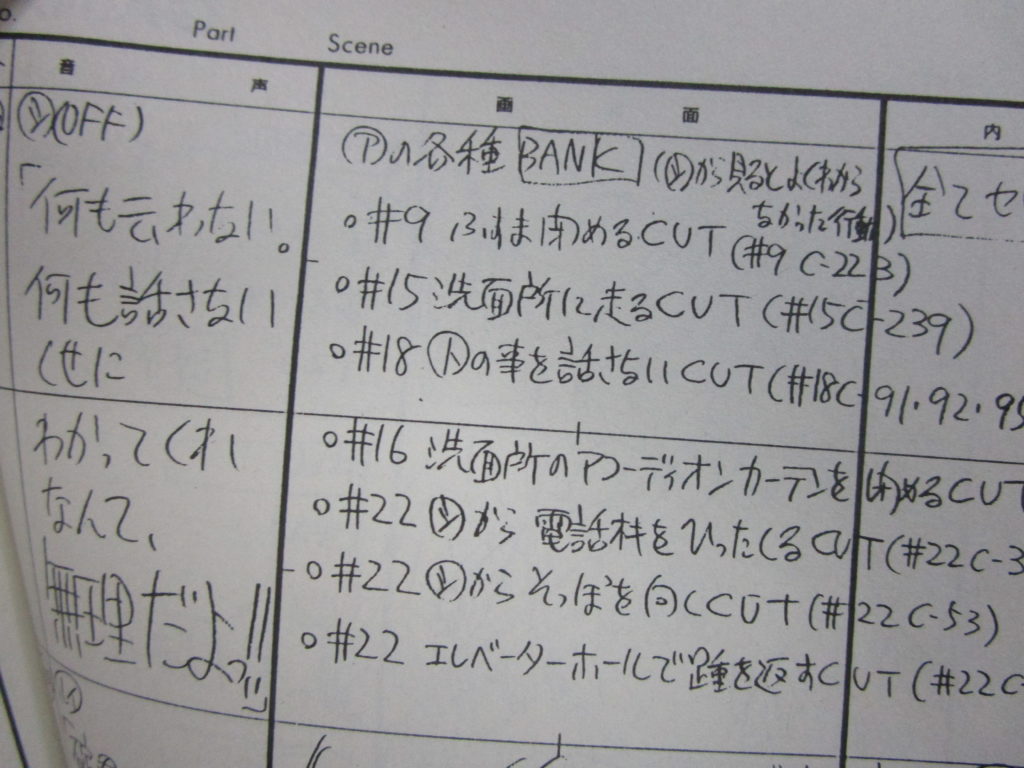 Part
Scene
音 声
画 面
内
(OFF)
「何も云わない。
何も話さない
くせに
わかってくれ
なんて、
無理だよっ!!」
アの各種 BANK (から見るとよくわから
なかった行動)
○#9 ふすま閉めるCUT (#9 C-22 3)
○#15 洗面所に走るCUT (#15C-239)
○#18 トの事を話さないCUT (#18C-91・92・95
○#16 洗面所のアコーディオンカーテンを閉めるCUT
○#22 から 電話をひったくるCUT (#22C-3
○#22 からそっぽを向くCUT (#22C-53)
○#22 エレベーターホールで踵を返すCUT (#22C-
全てセ